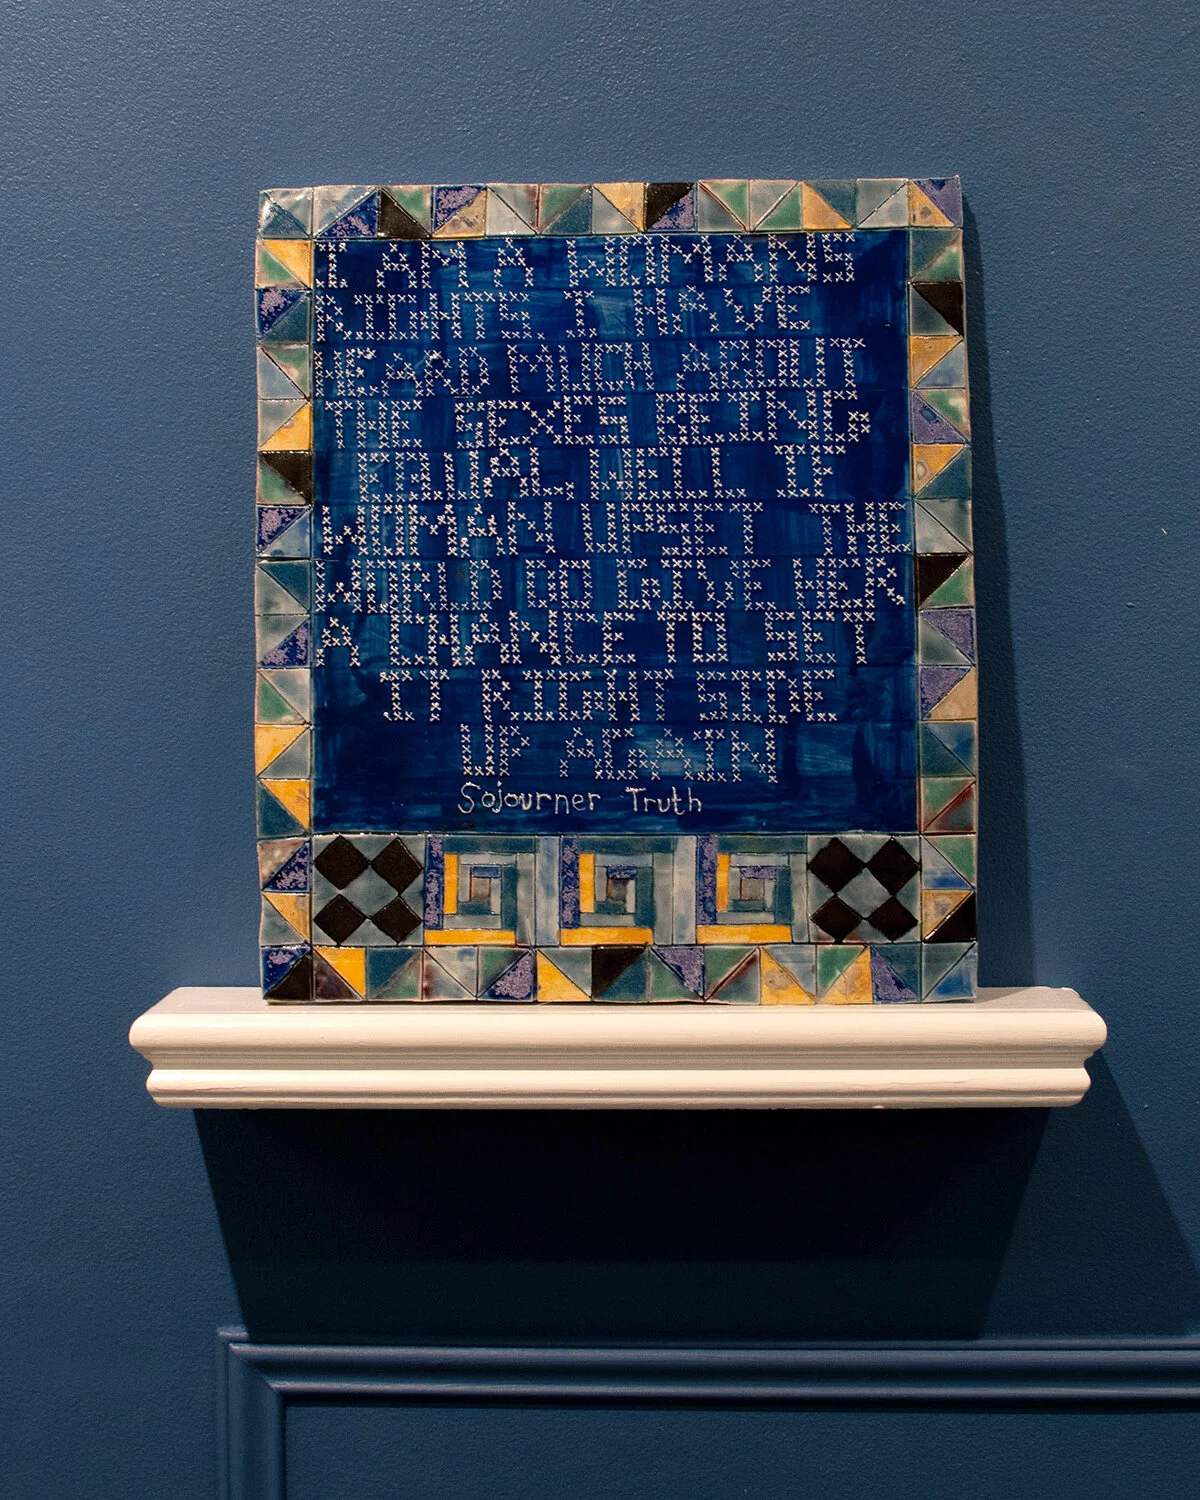 I AM A WOMANS
RIGHTS I HAVE
HEARD MUCH ABOUT
THE SEXES BEING
EQUAL, WELL IF
WOMAN UPSET THE
WORLD DO GIVE HER
A CHANCE TO SET
IT RIGHT SIDE
UP AGAIN
Sojourner Truth